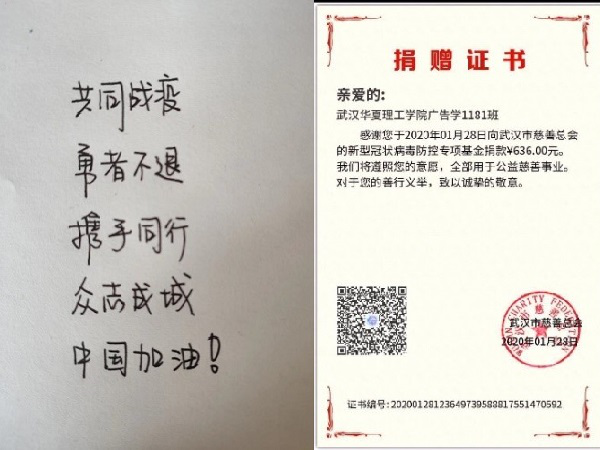 共同战疫
勇者不退
携手同行
众志成城
中国加油！
捐赠证书
亲爱的:
武汉华夏理工学院广告学1181班
感谢您于2020年01月28日向武汉市慈善总会
的新型冠状病毒防控专项基金捐款¥636.00元。
我们将遵照您的意愿，全部用于公益慈善事业。
对于您的善行义举，致以诚挚的敬意。
武汉市慈善总会
2020年01月28日
证书编号:2020012812364973958881755147​0592